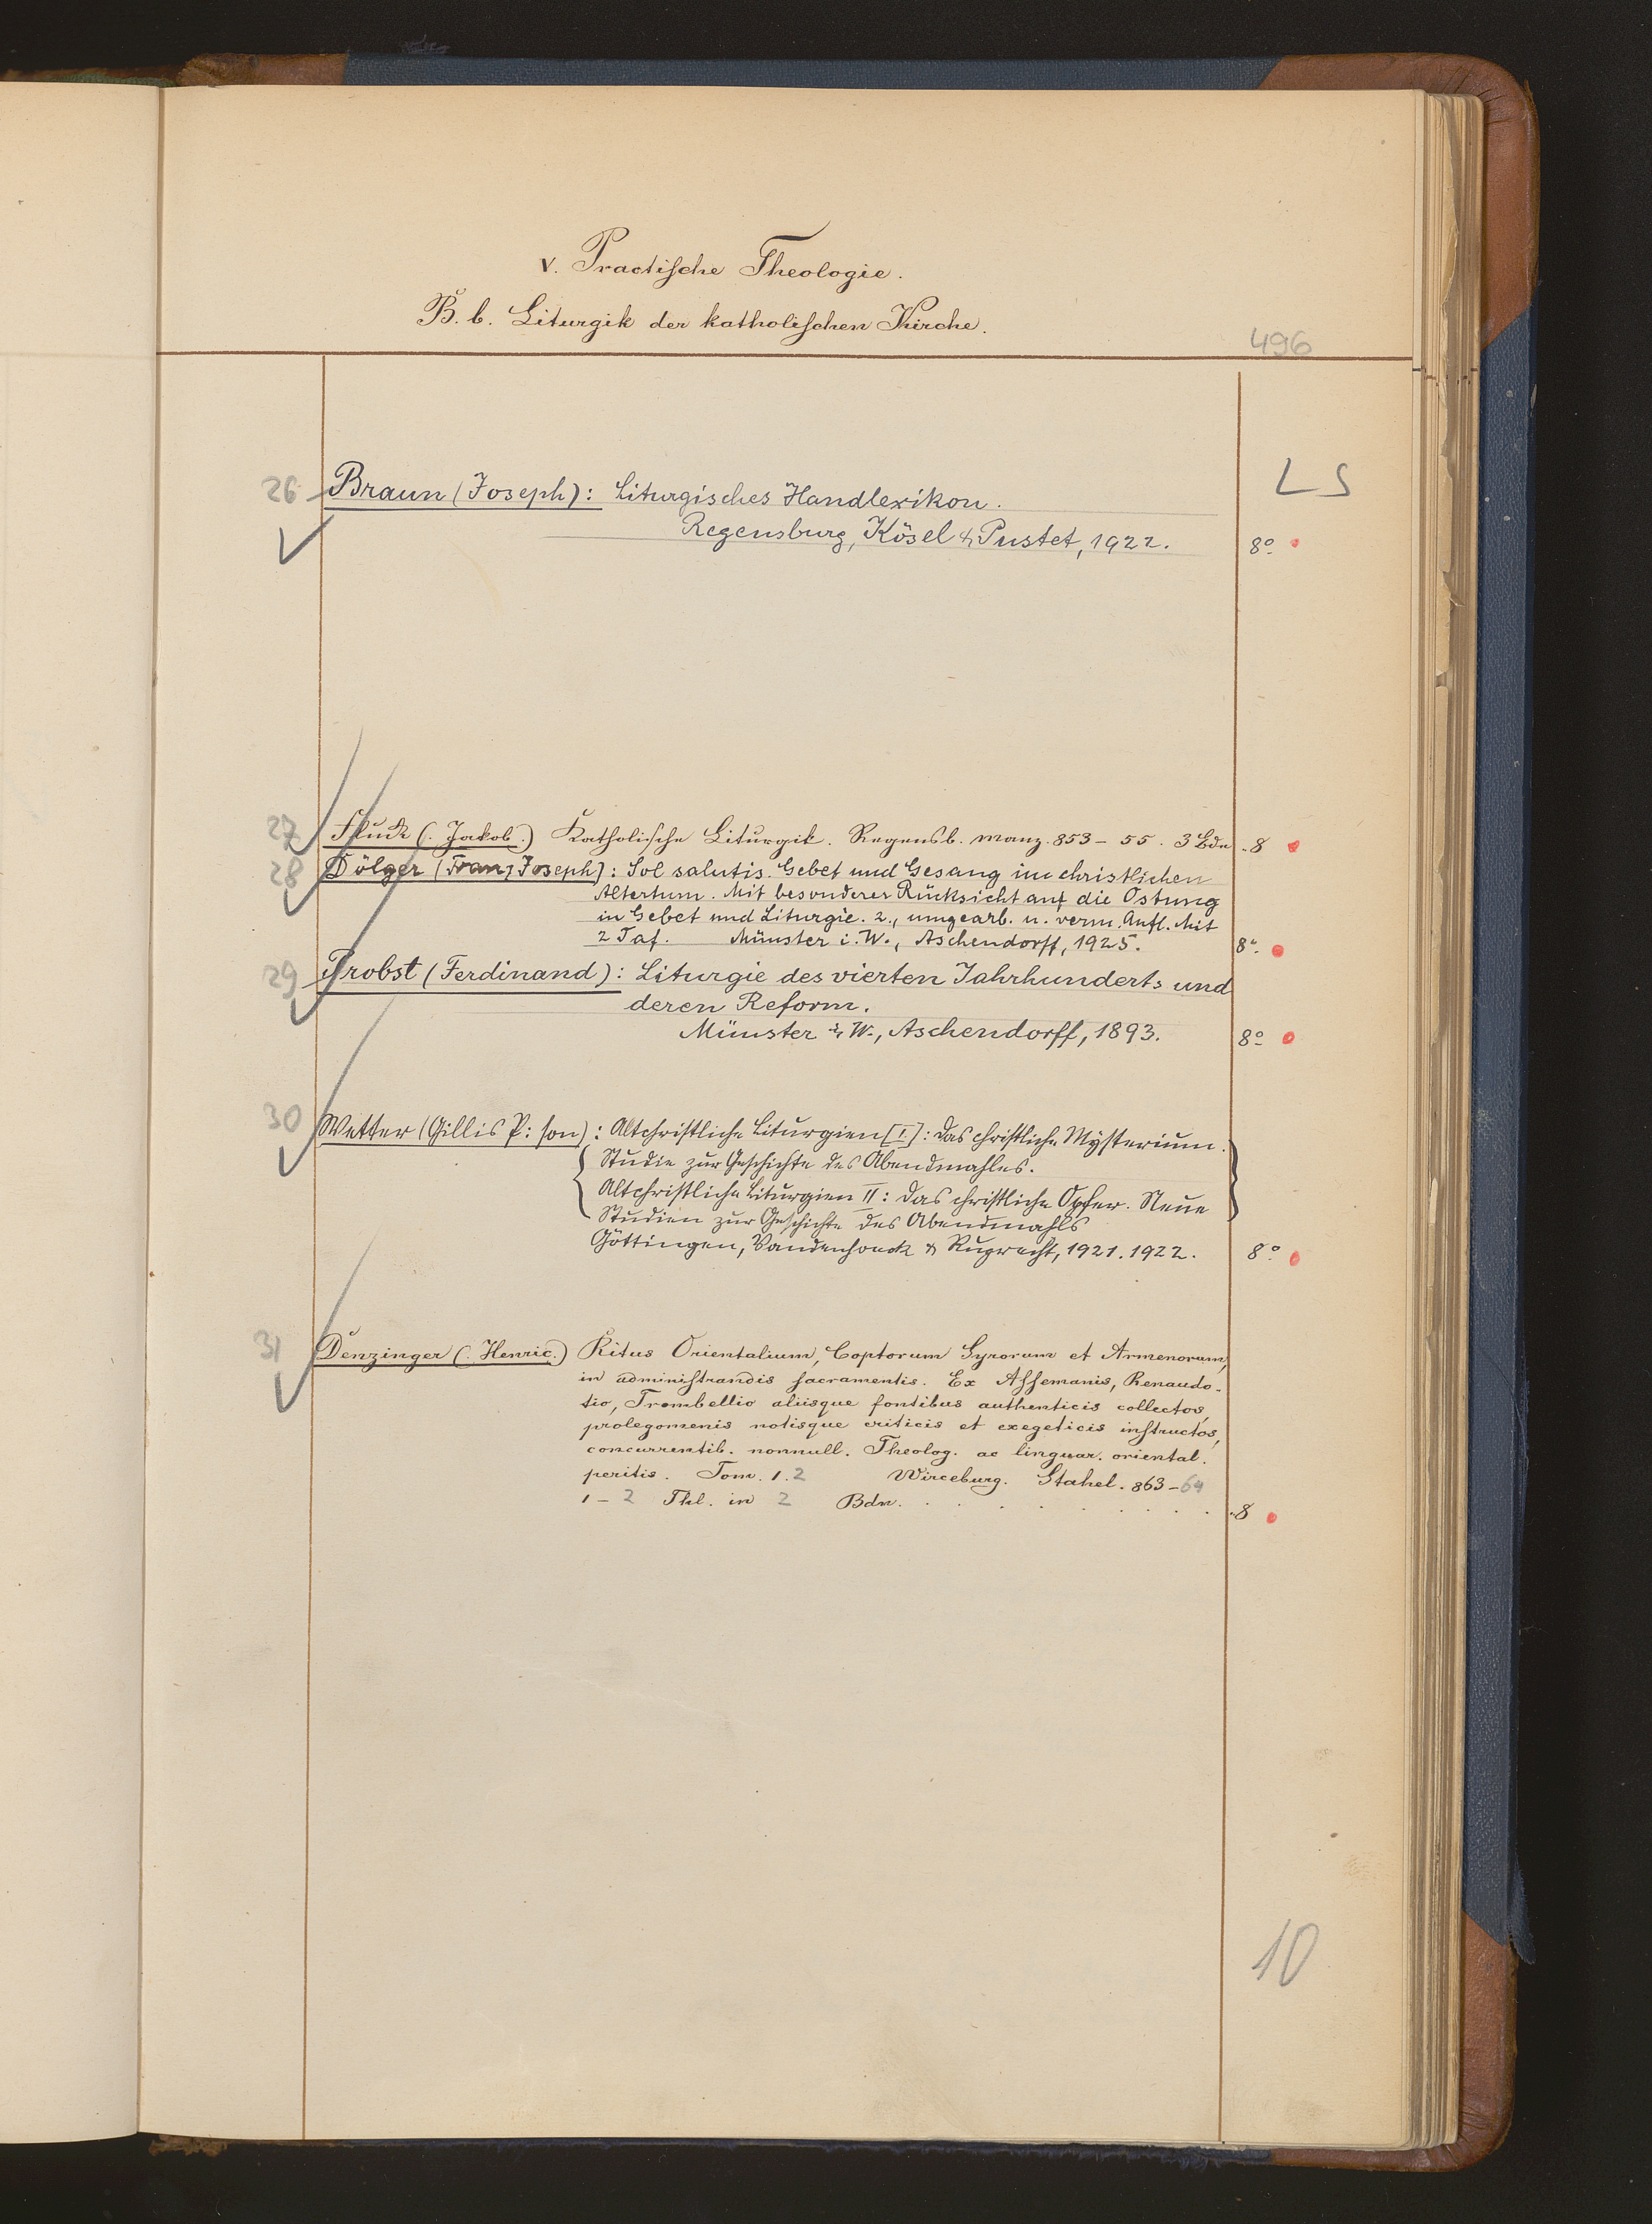 V. Practische Theologie.
B. b. Liturgik der katholischen Kirche.
496
LS
26 Braun (Joseph): Liturgisches Handlexikon.
Regensburg, Kösel & Pustet, 1922. 8º
27 Fluck (: Jakob.) Katholische Liturgik. Regensb. Manz. 853–55. 3 Bde .8
28 Dölger (Franz Joseph): Sol salutis. Gebet und Gesang im christlichen
Altertum. Mit besonderer Rücksicht auf die Ostung
in Gebet und Liturgie. 2., umgearb. u. verm. Aufl. Mit
2 Taf. Münster i. W., Aschendorff, 1925. 8º
29 Probst (Ferdinand): Liturgie des vierten Jahrhunderts und
deren Reform.
Münster i. W., Aschendorff, 1893. 8º
30 Wetter (Gillis P:son): Altchristliche Liturgien [I.]: Das christliche Mysterium.
Studie zur Geschichte des Abendmahles.
Altchristliche Liturgien II: Das christliche Opfer. Neue
Studien zur Geschichte des Abendmahls
Göttingen, Vandenhoeck & Ruprecht, 1921. 1922. 8º
31 Denzinger (: Henric.) Ritus Orientalium, Coptorum Syrorum et Armenorum,
in administrandis sacramentis. Ex Assemanis, Renaudo-
tio, Trombellio aliisque fontibus authenticis collectos,
prolegomenis notisque criticis et exegeticis instructos,
concurrentib. nonnull. Theolog. ac linguar. oriental.
peritis. Tom. 1. 2 Wirceburg. Stahel. 863–64
1–2 Thl. in 2 Bdn. . . . . . . . .8
10